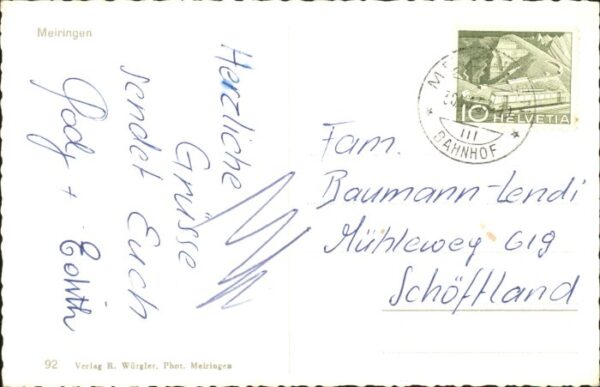 Meiringen
Herzliche
Grüsse
sendet Euch
+ Edith
92 Verlag R. Würgler, Phot. Meiringen
10 HELVETIA
III
BAHNHOF
Fam.
Baumann-Lendi
Mühleweg 619
Schöftland